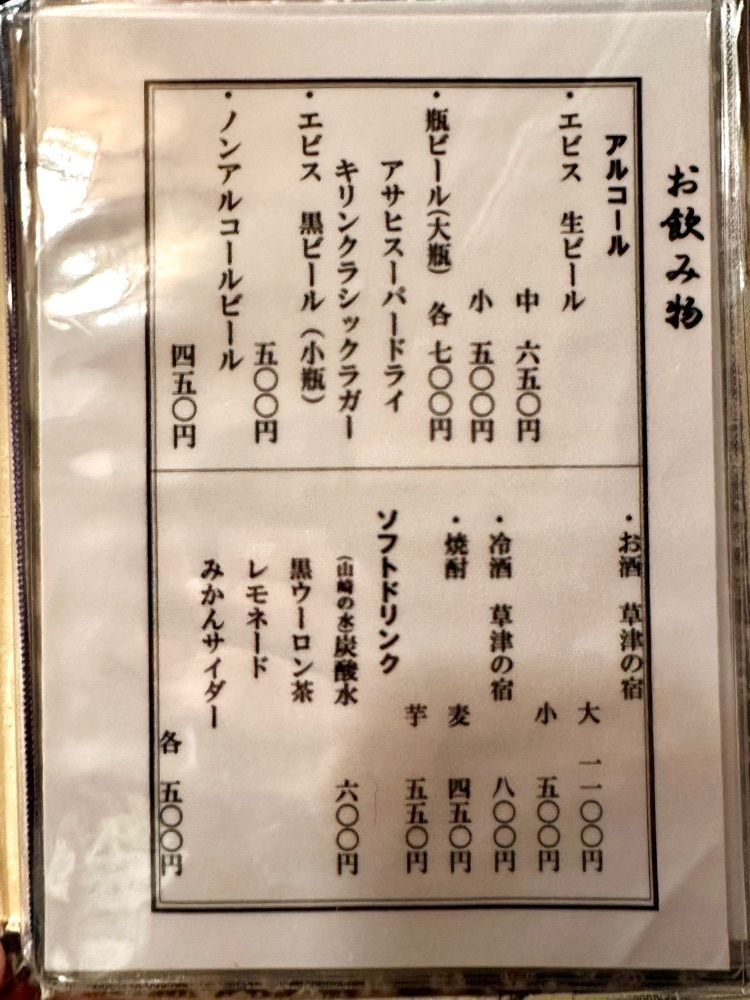 お飲み物
アルコール
・エビス 生ビール
中 六五〇円
小 五〇〇円
・瓶ビール(大瓶) 各 七〇〇円
アサヒスーパードライ
キリンクラシックラガー
・エビス 黒ビール(小瓶)
五〇〇円
・ノンアルコールビール
四五〇円
・お酒 草津の宿
大 一一〇〇円
小 五〇〇円
・冷酒 草津の宿 八〇〇円
・焼酎 麦 四五〇円
芋 五五〇円
ソフトドリンク
(山崎の水)炭酸水 六〇〇円
黒ウーロン茶
レモネード
みかんサイダー
各 五〇〇円